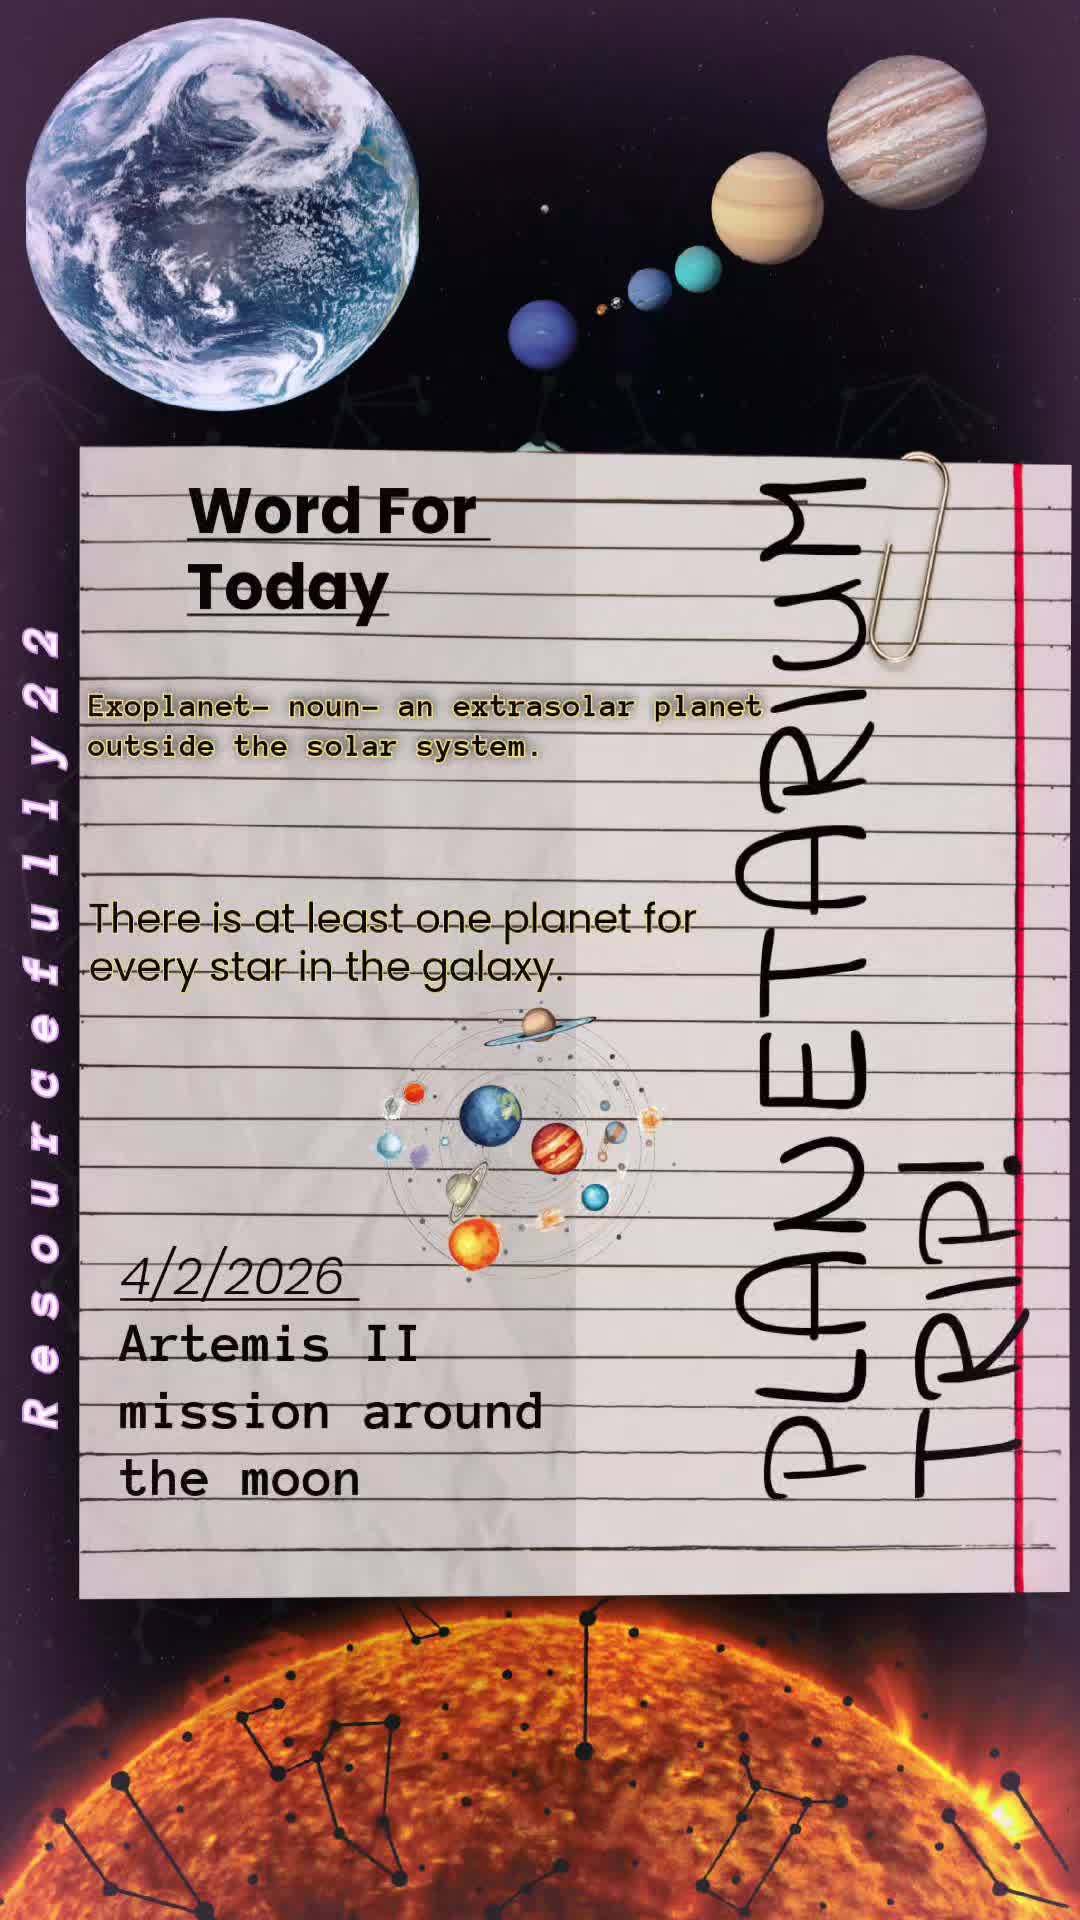 Word For
Today
Exoplanet- noun- an extrasolar planet
outside the solar system.
There is at least one planet for
every star in the galaxy.
4/2/2026
Artemis II
mission around
the moon
PLANETARIUM
TRIP!
Resourcefully22